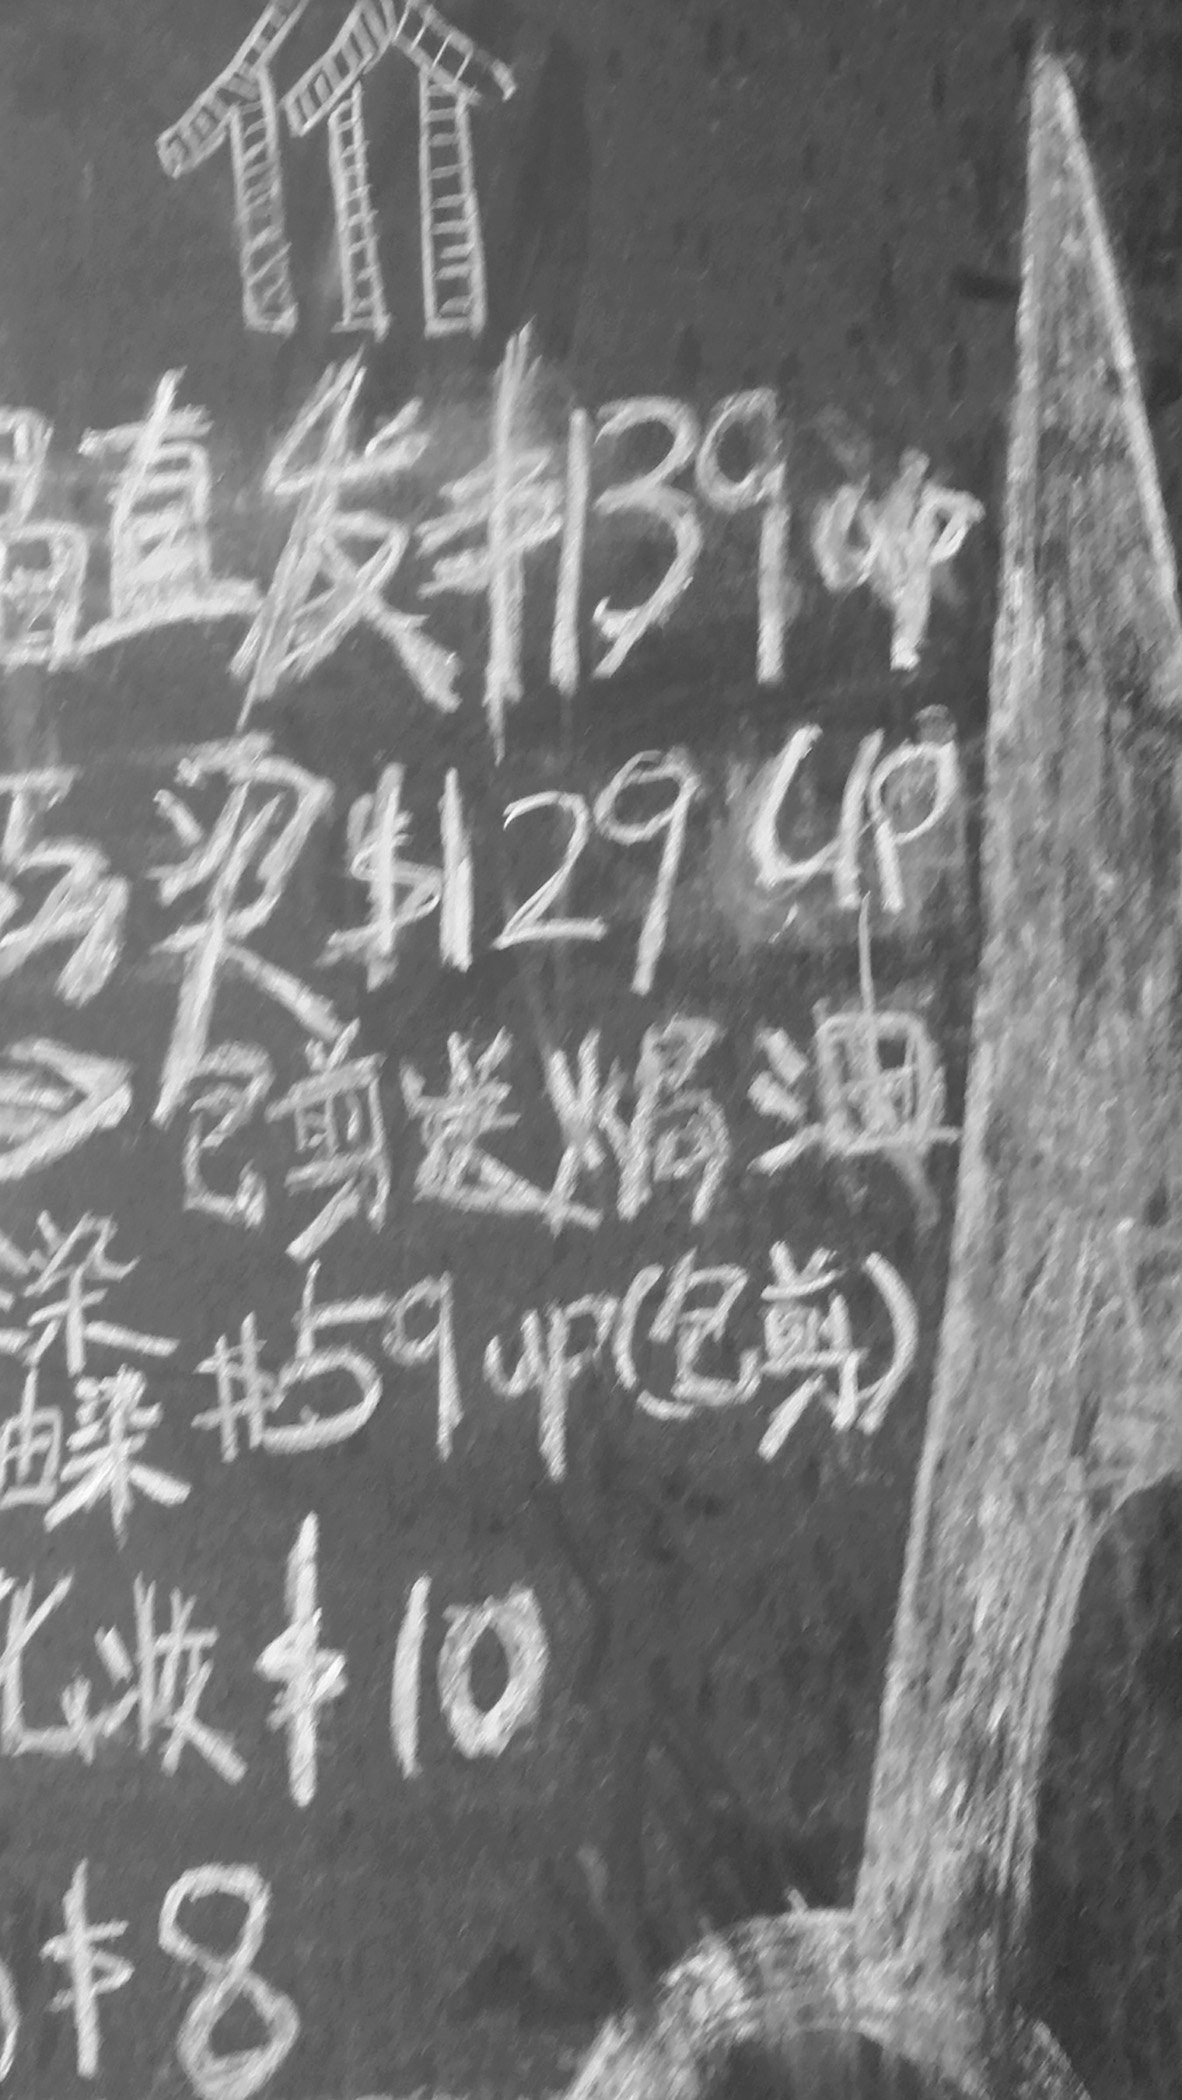 价
直发$139up
染$129 up
包剪送焗油
染
油染 $59up(包剪)
化妆$10
$8